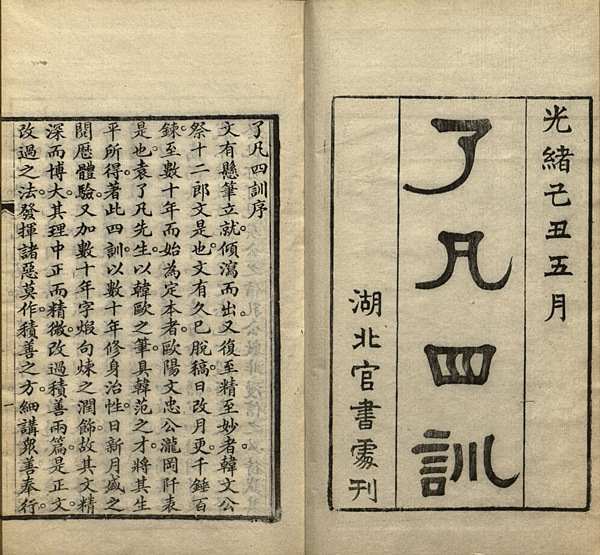 光緒己丑五月
了凡四訓
湖北官書處刊
了凡四訓序
文有懸筆立就。傾瀉而出。又復至精至妙者。韓文公
祭十二郎文是也。文有久已脫稿。日改月更。千錘百
鍊。至數十年而始為定本者。歐陽文忠公瀧岡阡表
是也。袁了凡先生。以韓歐之筆。具韓范之才。將其生
平所得。著此四訓。以數十年修身治性。日新月盛之
閱歷體驗。又加數十年字煅句煉之潤飾。故其文精
深而博大。其理中正而精微。改過積善兩篇。是正文。
改過之法。發揮諸惡莫作。積善之方。細講衆善奉行。